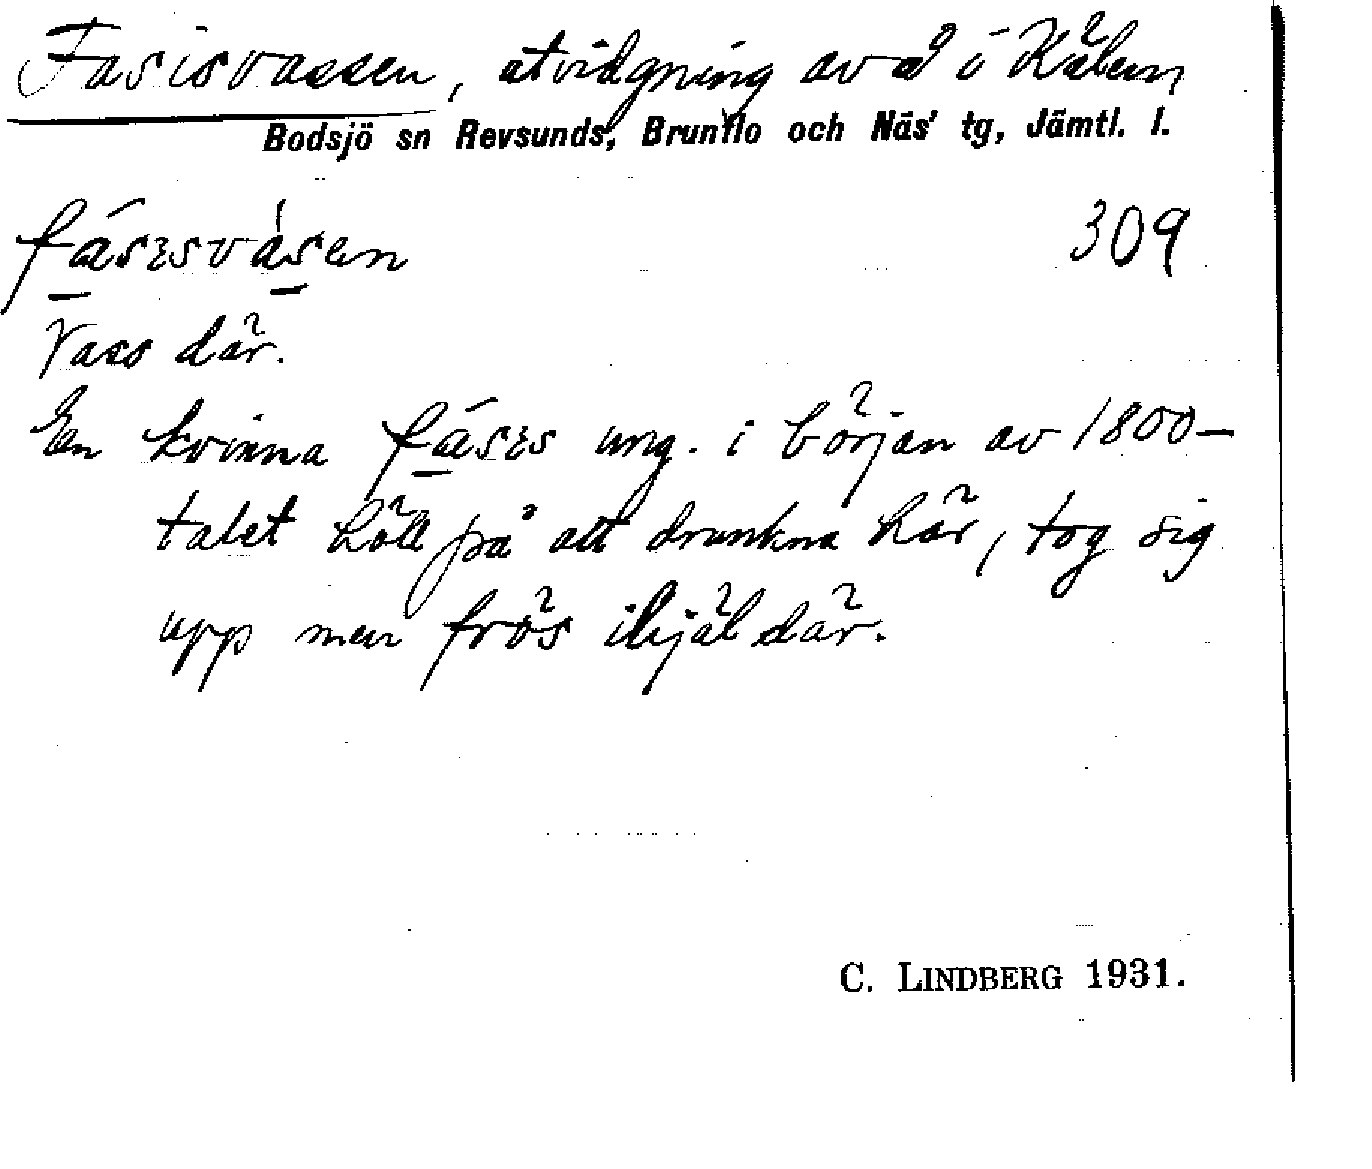 Fasisvassen, utvidgning av å i Kälen
Bodsjö sn Revsunds, Brunflo och Näs' tg, Jämtl. l.
fásisvásen 309
Vass där.
En kvinna fásis ung. i början av 1800-
talet höll på att drunkna här, tog sig
upp men frös ihjäl där.
C. LINDBERG 1931.